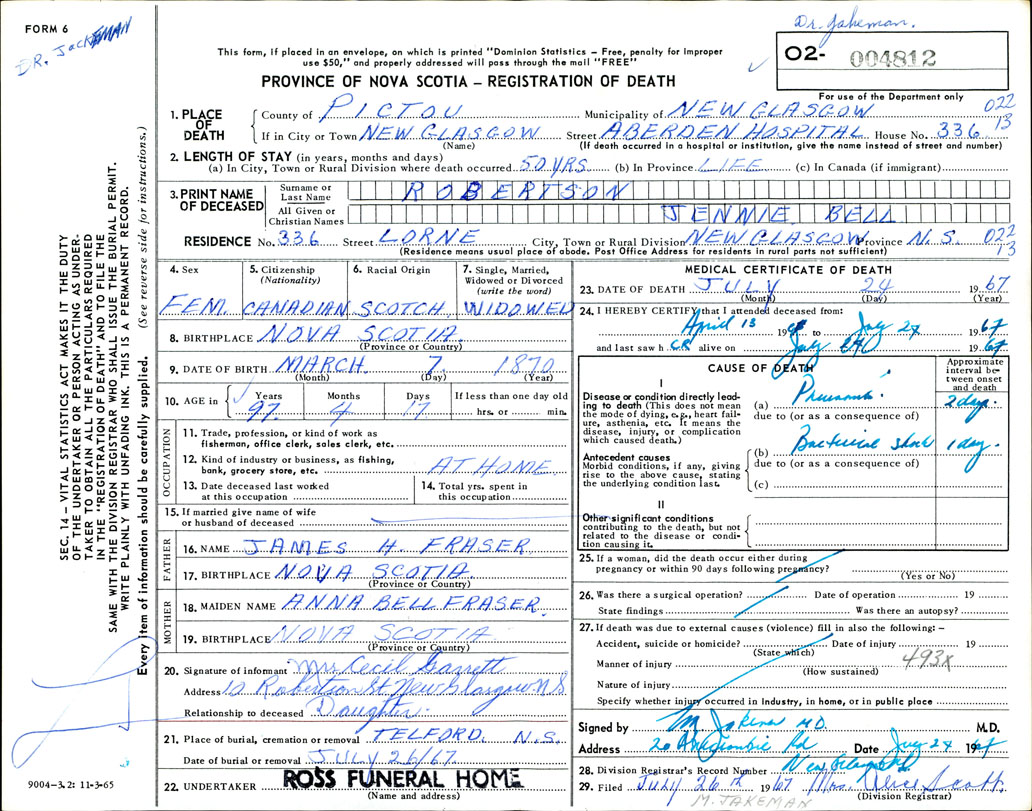 FORM 6
DR. JACKEMAN
Dr. Jakeman.
This form, if placed in an envelope, on which is printed "Dominion Statistics – Free, penalty for improper
use $50," and properly addressed will pass through the mail "FREE"
PROVINCE OF NOVA SCOTIA – REGISTRATION OF DEATH
O2- 004812
For use of the Department only
022
13
1. PLACE OF DEATH
County of PICTOU Municipality of NEW GLASGOW
If in City or Town NEW GLASGOW Street ABERDEN HOSPITAL House No. 336
(Name) (If death occurred in a hospital or institution, give the name instead of street and number)
2. LENGTH OF STAY (in years, months and days)
(a) In City, Town or Rural Division where death occurred 50 YRS. (b) In Province LIFE (c) In Canada (if immigrant)
3. PRINT NAME OF DECEASED
Surname or Last Name ROBERTSON
All Given or Christian Names JENNIE BELL
RESIDENCE No. 336 Street LORNE City, Town or Rural Division NEW GLASGOW Province N.S. 022
13
(Residence means usual place of abode. Post Office Address for residents in rural parts not sufficient)
4. Sex 5. Citizenship (Nationality) 6. Racial Origin 7. Single, Married, Widowed or Divorced (write the word)
FEM. CANADIAN SCOTCH WIDOWED
8. BIRTHPLACE NOVA SCOTIA
(Province or Country)
9. DATE OF BIRTH MARCH 7. 1870
(Month) (Day) (Year)
10. AGE in Years Months Days If less than one day old
97. 4 17 hrs. or min.
OCCUPATION
11. Trade, profession, or kind of work as
fisherman, office clerk, sales clerk, etc.
12. Kind of industry or business, as fishing,
bank, grocery store, etc. AT HOME
13. Date deceased last worked
at this occupation
14. Total yrs. spent in
this occupation
15. If married give name of wife
or husband of deceased
FATHER
16. NAME JAMES H. FRASER
17. BIRTHPLACE NOVA SCOTIA.
(Province or Country)
MOTHER
18. MAIDEN NAME ANNA BELL FRASER.
19. BIRTHPLACE NOVA SCOTIA
(Province or Country)
20. Signature of informant Mrs Cecil Garrett
Address 10 Robertson St. New Glasgow N S
Relationship to deceased Daughter.
21. Place of burial, cremation or removal TELFORD. N.S.
Date of burial or removal JULY 26/67.
22. UNDERTAKER ROSS FUNERAL HOME
(Name and address)
MEDICAL CERTIFICATE OF DEATH
23. DATE OF DEATH JULY 24 1967
(Month) (Day) (Year)
24. I HEREBY CERTIFY that I attended deceased from:
April 13 19 to July 24 1967
and last saw her alive on July 1967
CAUSE OF DEATH
Approximate interval between onset and death
I
Disease or condition directly leading to death (This does not mean
the mode of dying, e.g., heart failure, asthenia, etc. It means the
disease, injury, or complication
which caused death.)
(a) Pneumonia 2 day.
due to (or as a consequence of)
Antecedent causes
Morbid conditions, if any, giving
rise to the above cause, stating
the underlying condition last.
(b) Bacterial shock 1 day.
due to (or as a consequence of)
(c)
II
Other significant conditions
contributing to the death, but not
related to the disease or condition causing it.
25. If a woman, did the death occur either during
pregnancy or within 90 days following pregnancy?
(Yes or No)
26. Was there a surgical operation? Date of operation 19
State findings Was there an autopsy?
27. If death was due to external causes (violence) fill in also the following: –
Accident, suicide or homicide? Date of injury 19
(State which)
Manner of injury 493X
(How sustained)
Nature of injury
Specify whether injury occurred in Industry, in home, or in public place
Signed by M Jakeman M.D. M.D.
Address 20 Abercrombie Rd Date July 24 1967
New Glasgow
28. Division Registrar's Record Number
29. Filed July 26th 1967 Mrs. Alice Scott.
(Division Registrar)
M. JAKEMAN
SEC. 14 – VITAL STATISTICS ACT MAKES IT THE DUTY
OF THE UNDERTAKER OR PERSON ACTING AS UNDER-
TAKER TO OBTAIN ALL THE PARTICULARS REQUIRED
IN THE "REGISTRATION OF DEATH" AND TO FILE THE
SAME WITH THE DIVISION REGISTRAR WHO SHALL ISSUE THE BURIAL PERMIT.
WRITE PLAINLY WITH UNFADING INK. THIS IS A PERMANENT RECORD.
Every item of information should be carefully supplied. (See reverse side for instructions.)
9004-3.2: 11-3-65